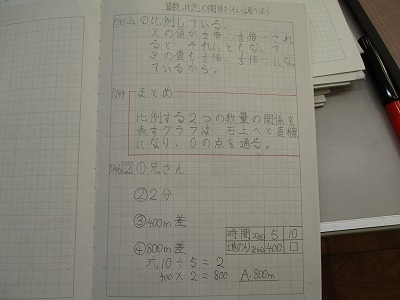 算数 比例の関係をくわしく調べよう
P.140 △ ① 比例している。
xの値が1/2倍、1/3倍…され
ると、それにともなって
yの値も1/2倍、1/3倍…になっ
ているから。
P.144 まとめ
比例する2つの数量の関係を
表すグラフは、右上へと直線
になり、0の点を通る。
P.146 2 ① 兄さん
② 2分
③ 400m差
時間 x(分) 5 10
④ 800m差 道のり y(m) 400 □
式 10÷5=2
400×2=800 A.800m